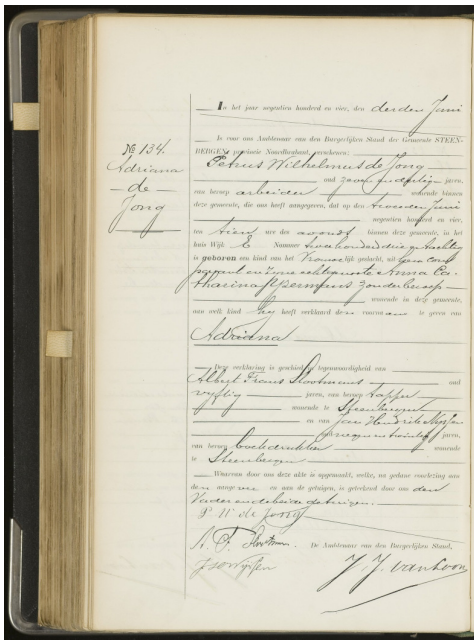 № 134.
Adriana
de
Jong
In het jaar negentien honderd en vier, den derden Juni
Is voor ons Ambtenaar van den Burgerlijken Stand der Gemeente STEEN-
BERGEN, provincie Noordbrabant, verschenen:
Petrus Wilhelmus de Jong
oud zeven en dertig jaren,
van beroep arbeider wonende binnen
deze gemeente, die ons heeft aangegeven, dat op den tweeden Juni
negentien honderd en vier,
ten tien ure des avonds binnen deze gemeente, in het
huis Wijk E Nummer tweehonderd drie en tachtig
is geboren een kind van het Vrouwelijk geslacht, uit hem com-
parant en zyne echtgenoote Anna Ca-
tharina zonder beroep
wonende in deze gemeente,
aan welk kind hy heeft verklaard den voornaam te geven van
Adriana
Deze verklaring is geschied in tegenwoordigheid van
Albert Frans Slootmans oud
vyftig jaren, van beroep tapper
wonende te Steenbergen
en van Jan Hendrik
oud negen en twintig jaren,
van beroep boekdrukker wonende
te Steenbergen
Waarvan door ons deze akte is opgemaakt, welke, na gedane voorlezing aan
den aangever en aan de getuigen, is geteekend door ons den
Vader en de beide getuigen.
P. W. de Jong
A. F. Slootmans
De Ambtenaar van den Burgerlijken Stand,
J. J. van Loon